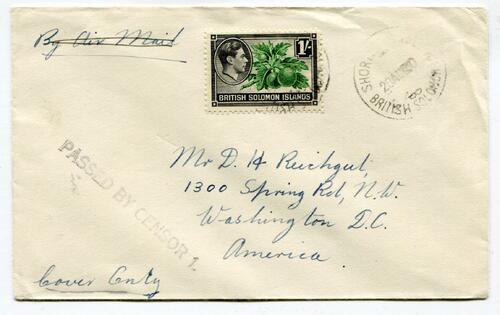 By Air Mail
1/-
BRITISH SOLOMON ISLANDS
SHOR
BRITISH SOLOMON
PASSED BY CENSOR 1.
Mr D. H Reichgut,
1300 Spring Rd, N.W.
Washington D.C.
America
Cover Only